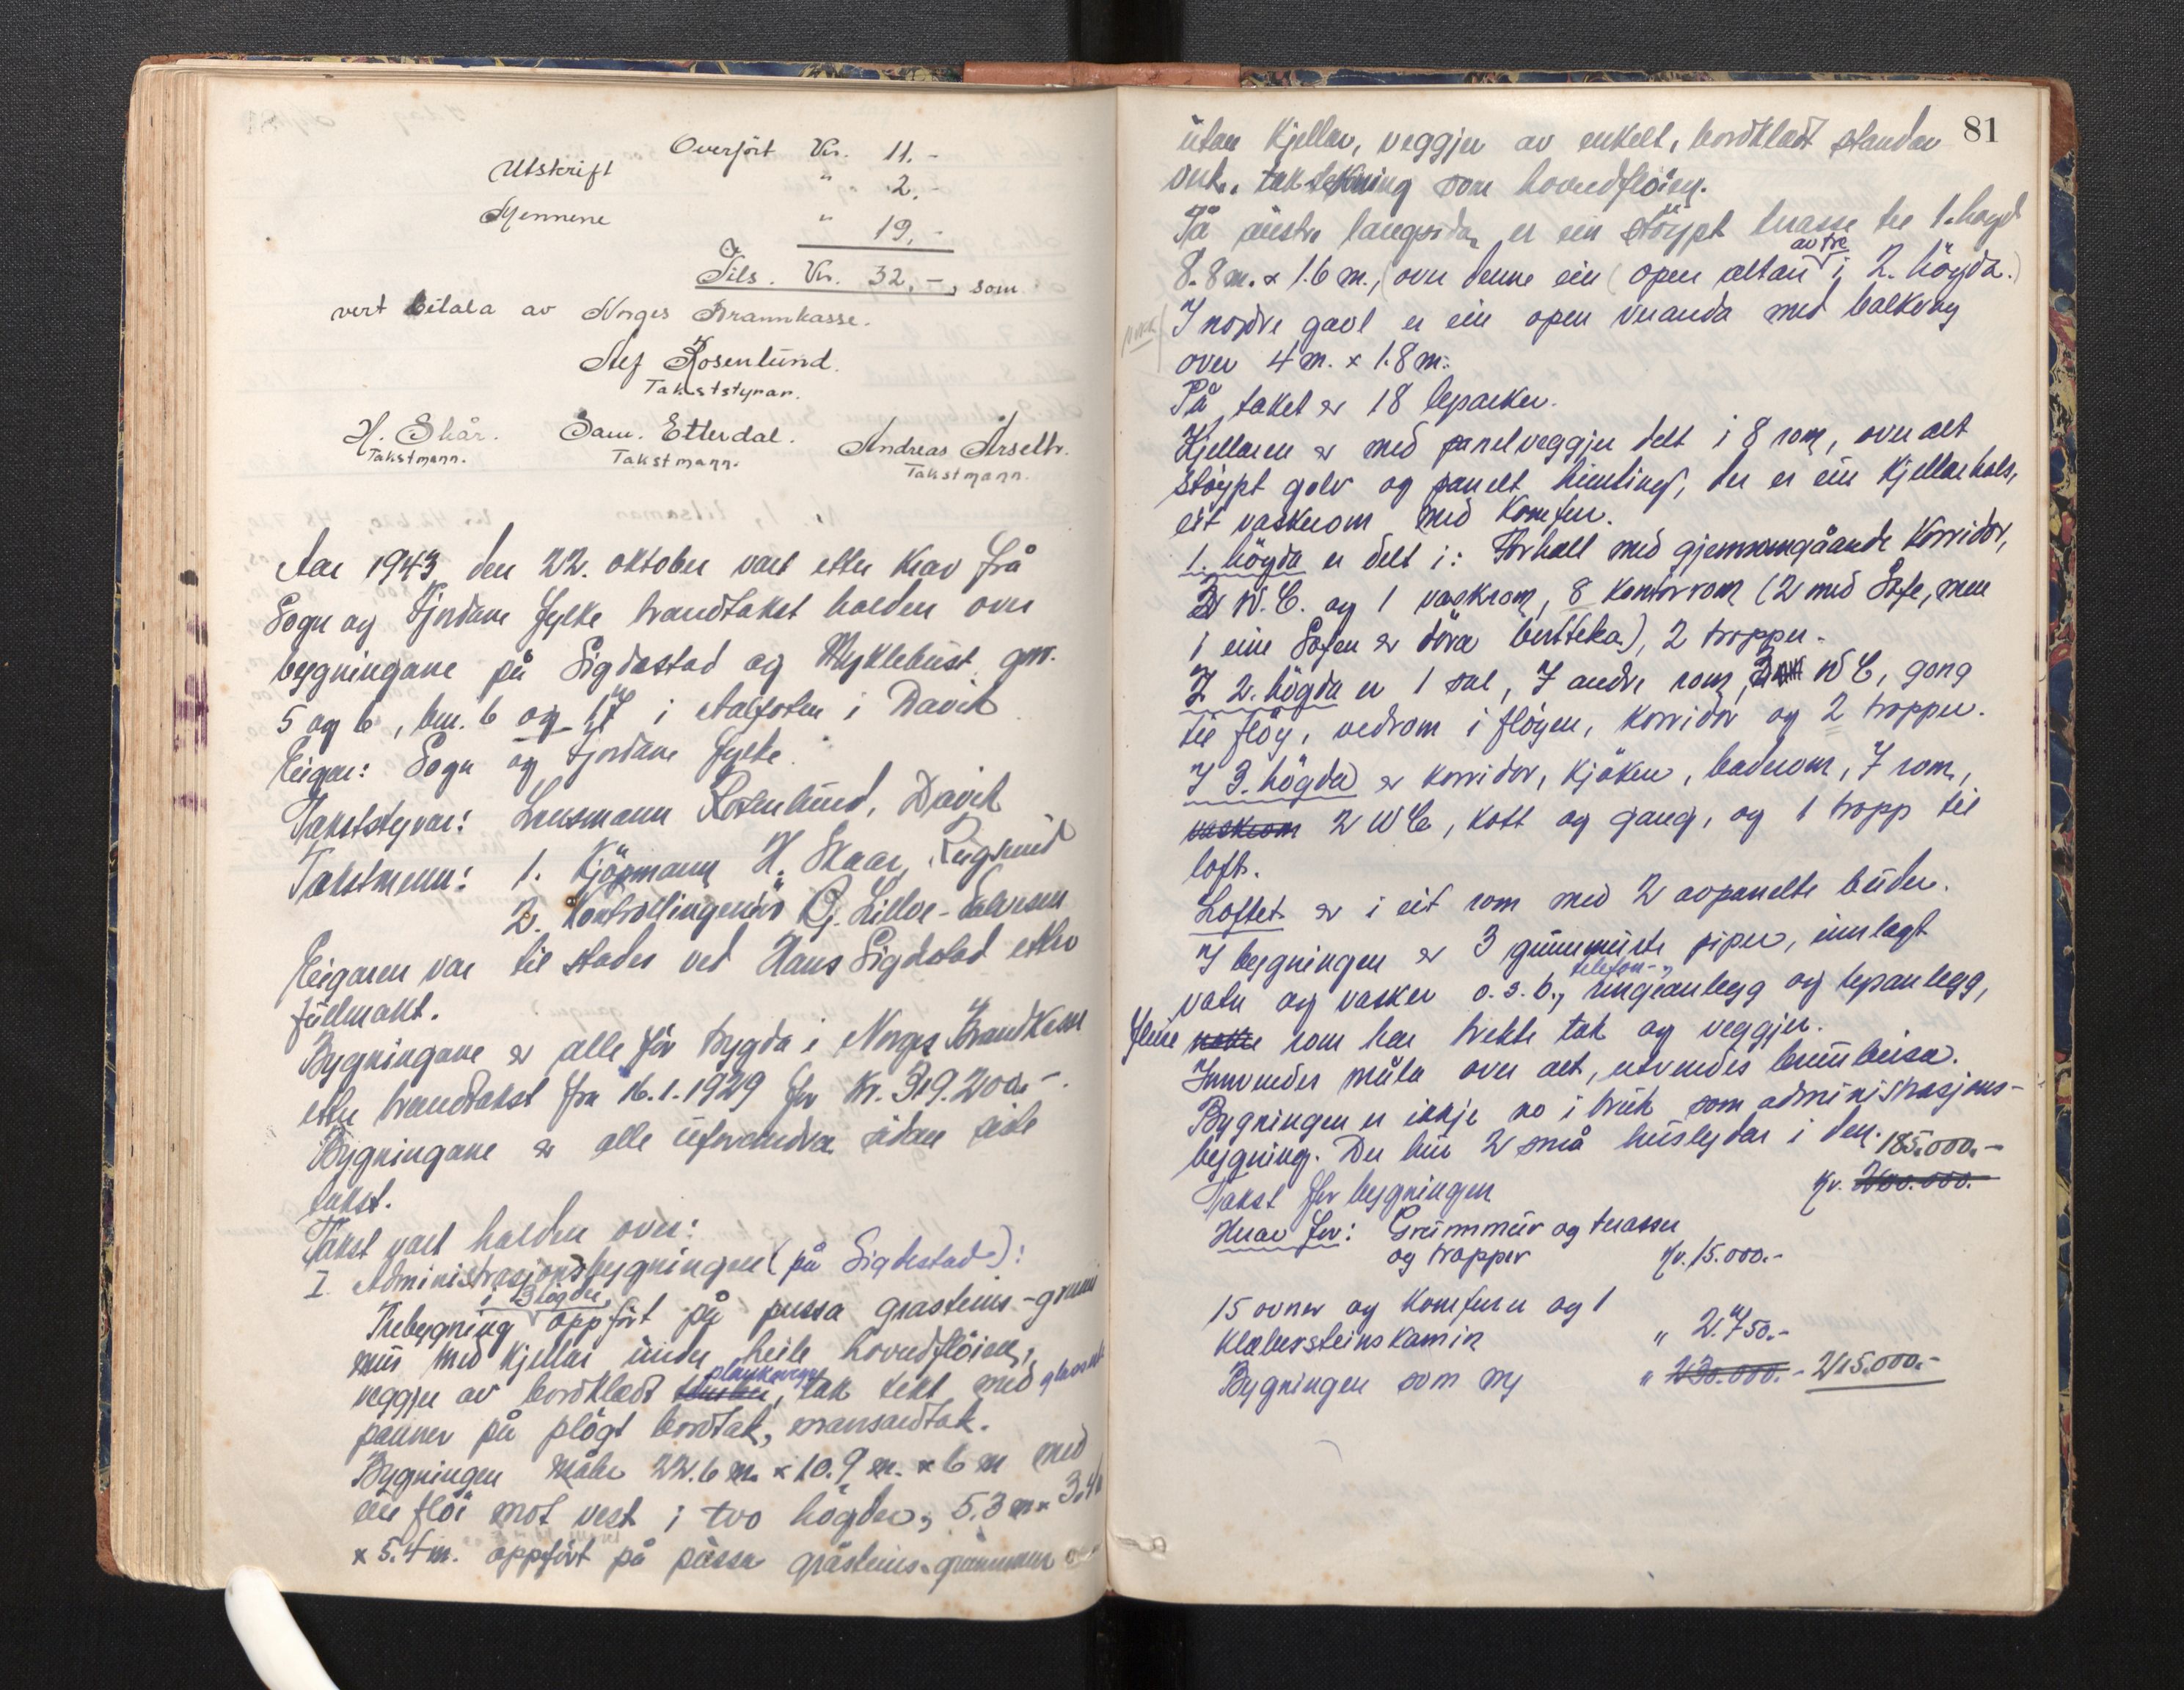 Overført Kr. 11.-
Utskrift " 2.-
Mennene " 19,-
Tils. Kr. 32,-, som
vert bitala av Norges Brannkasse.
Alf Rosenlund.
Takststyrar.
H. Skår. Sam. Etterdal. Andreas
Takstmann. Takstmann. Takstmann.
Aar 1943 den 22. oktober vart etter krav frå
Sogn og Fjordane fylke brandtakst halden over
bygningane på Sigdestad og Myklebust gnr.
5 og 6, bnr. 6 og 17 i Aalfoten i Davik
Eigar: Sogn og Fjordane fylke.
Takststyrar: Lensmann Rosenlund, Davik
Takstmenn: 1. Kjöpmann H. Skaar, Rugsund
2. Kontrollingeniör Lilloe-Salvesen
Eigaren var til stades ved Hans Sigdestad etter
fullmakt.
Bygningane er alle för trygda i Norges Brandkasse
etter brandtakst fra 16.1.1929 for kr. 319.200.-
Bygningane er alle uforandra sidan siste
takst.
Takst vart halden over:
I Administrasjonsbygningen (på Sigdestad):
i 3 högder
Trebygning oppfört på pussa grasteins-grunn
mur med kjellar under heile hovudflöien,
plankevegg
veggjer av bordklædt tak tekt med glaserte
panner på plögt bordtak, mansardtak.
Bygningen måler 22.6 m. x 10.9 m. x 6 m med
ein flöi mot vest i tvo högder, 5.3 m x 3.4
x 5.4 m. oppfört på pussa gråsteins-grunnmur
81
utan kjellar, veggjer av enkelt, bordklædt standar
verk, taktekning som hovudflöien.
På austre langsida er ein stöypt terasse til 1. högd
av tre
8.8 m. x 1.6 m., (over denne ein (open altan i 2. högda.)
I nordre gavl er ein open veranda med balkong
over 4 m. x 1.8 m.
På taket er 18 lynparker.
Kjellaren er med panelveggjer delt i 8 rom, over alt
stöypt golv og panelt himling, der er ein kjellarhals,
eit vaskerom med komfur.
1. högda er delt i: Forhall med gjennomgåande korridor,
2 W.C. og 1 vaskrom, 8 kontorrom (2 med Safe, men
i eine Safen er döra burtteka), 2 tropper.
I 2. högda er 1 sal, 7 andre rom, 2 WC, gong
til flöy, vedrom i flöyen, korridor og 2 tropper.
I 3. högda er korridor, kjöken, baderom, 7 rom,
vaskrom 2 WC, kott og gang, og 1 tropp til
loft.
Loftet er i eit rom med 2 avpanelte buder.
I bygningen er 3 gjennommurte piper, innlagt
telefon-,
vatn og vasker o.s.b., ringeanlegg og lysanlegg,
fleire som har trekte tak og veggjer.
Innvendes måla over alt, utvendes brunbeisa.
Bygningen er ikkje no i bruk som administrasjons-
bygning. Der bur 2 små huslydar i den.
185.000.-
Takst for bygningen kr. 200.000.-
Herav for: Grunnmur og terasser
og tropper kr. 15.000.-
15 ovner og komfurer og 1
klebersteins kamin " 2.750.-
Bygningen som ny " 230.000.- 215.000.-